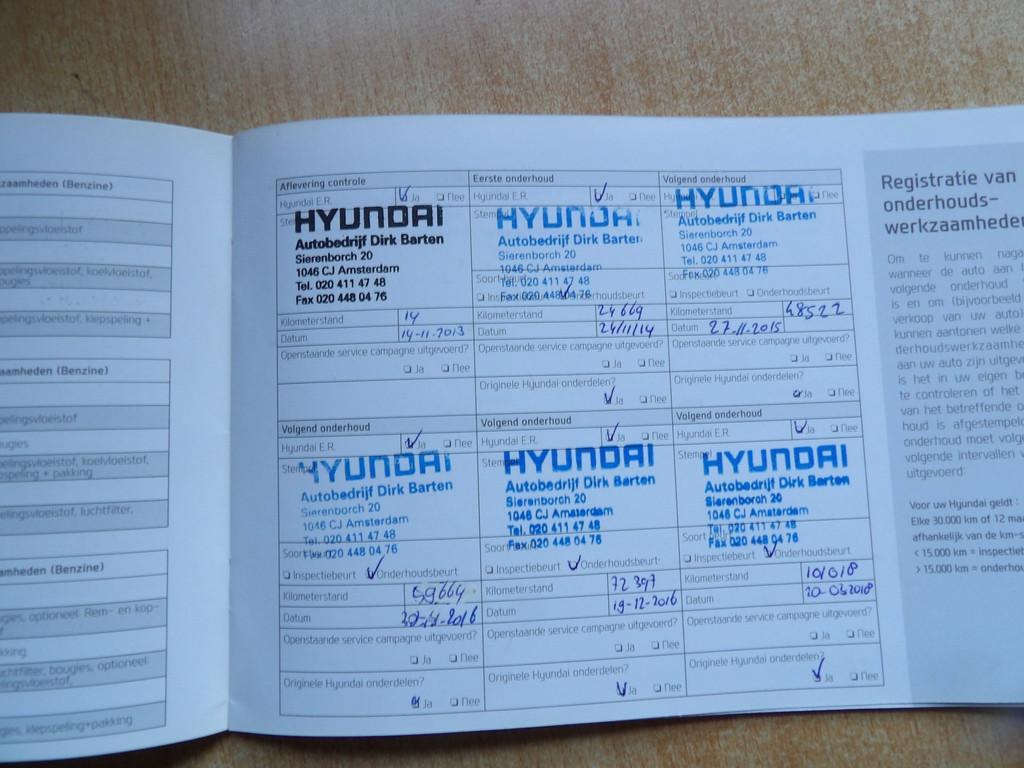 zaamheden (Benzine)
ppelingsvloeistof
ppelingsvloeistof, koelvloeistof,
ougies
ppelingsvloeistof, klepspeling +
aamheden (Benzine)
pelingsvloeistof
ugies
pelingsvloeistof, koelvloeistof,
pspeling + pakking
elingsvloeistof, luchtfilter,
amheden (Benzine)
gies, optioneel: Rem- en kop-
kking
uchtfilter, bougies, optioneel:
elingsvloeistof,
gies, klepspeling+pakking
Aflevering controle
Hyundai E.R. Ja Nee
HYUNDAI
Autobedrijf Dirk Barten
Sierenborch 20
1046 CJ Amsterdam
Tel. 020 411 47 48
Fax 020 448 04 76
Kilometerstand 14
Datum 14-11-2013
Openstaande service campagne uitgevoerd?
Ja Nee
Eerste onderhoud
Hyundai E.R. Ja Nee
Stempel
HYUNDAI
Autobedrijf Dirk Barten
Sierenborch 20
1046 CJ Amsterdam
Tel. 020 411 47 48
Fax 020 448 04 76
Onderhoudsbeurt
Kilometerstand 24669
Datum 24/11/14
Openstaande service campagne uitgevoerd?
Ja Nee
Originele Hyundai onderdelen?
Ja Nee
Volgend onderhoud
Hyundai E.R. Nee
Stempel
HYUNDAI
Autobedrijf Dirk Barten
Sierenborch 20
1046 CJ Amsterdam
Tel. 020 411 47 48
Fax 020 448 04 76
Inspectiebeurt Onderhoudsbeurt
Kilometerstand 48522
Datum 27-11-2015
Openstaande service campagne uitgevoerd?
Ja Nee
Originele Hyundai onderdelen?
Ja Nee
Volgend onderhoud
Hyundai E.R. Ja Nee
Stempel
HYUNDAI
Autobedrijf Dirk Barten
Sierenborch 20
1046 CJ Amsterdam
Tel. 020 411 47 48
Fax 020 448 04 76
Inspectiebeurt Onderhoudsbeurt
Kilometerstand 59664
Datum
Openstaande service campagne uitgevoerd?
Ja Nee
Originele Hyundai onderdelen?
Ja Nee
Volgend onderhoud
Hyundai E.R. Ja Nee
Stempel
HYUNDAI
Autobedrijf Dirk Barten
Sierenborch 20
1046 CJ Amsterdam
Tel. 020 411 47 48
Fax 020 448 04 76
Inspectiebeurt Onderhoudsbeurt
Kilometerstand 72397
Datum 19-12-2016
Openstaande service campagne uitgevoerd?
Ja Nee
Originele Hyundai onderdelen?
Ja Nee
Volgend onderhoud
Hyundai E.R. Ja Nee
Stempel
HYUNDAI
Autobedrijf Dirk Barten
Sierenborch 20
1046 CJ Amsterdam
Tel. 020 411 47 48
Fax 020 448 04 76
Inspectiebeurt Onderhoudsbeurt
Kilometerstand 101018
Datum 20-03-2018
Openstaande service campagne uitgevoerd?
Ja Nee
Originele Hyundai onderdelen?
Ja Nee
Registratie van
onderhouds-
werkzaamheden
Om te kunnen naga
wanneer de auto aan
volgende onderhoud
is en om (bijvoorbeeld
verkoop van uw auto)
kunnen aantonen welke
derhoudswerkzaamhe
aan uw auto zijn uitgev
is het in uw eigen be
te controleren of het
van het betreffende o
houd is afgestempeld
onderhoud moet volg
volgende intervallen
uitgevoerd:
Voor uw Hyundai geldt :
Elke 30.000 km of 12 maa
afhankelijk van de km-s
< 15.000 km = inspectieb
> 15.000 km = onderhou